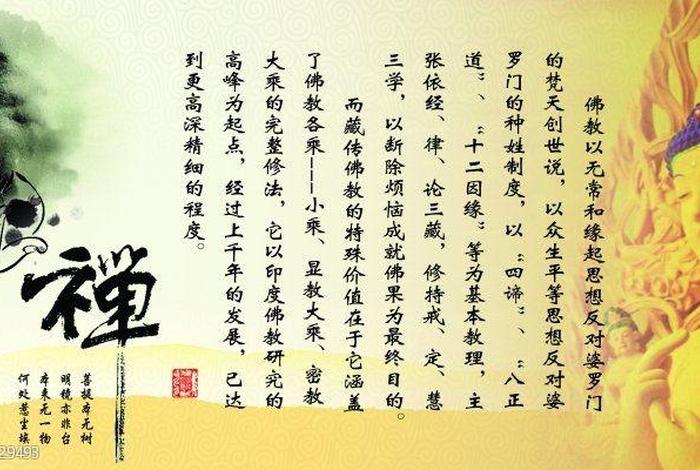 佛教以无常和缘起思想反对婆罗门
的梵天创世说，以众生平等思想反对婆
罗门的种姓制度，以“四谛”、“八正
道”、“十二因缘”等为基本教理，主
张依经、律、论三藏，修持戒、定、慧
三学，以断除烦恼成就佛果为最终目的。
而藏传佛教的特殊价值在于它涵盖
了佛教各乘——小乘、显教大乘、密教
大乘的完整修法，它以印度佛教研究的
高峰为起点，经过上千年的发展，已达
到更高深精细的程度。
禅
菩提本无树
明镜亦非台
本来无一物
何处惹尘埃
29493